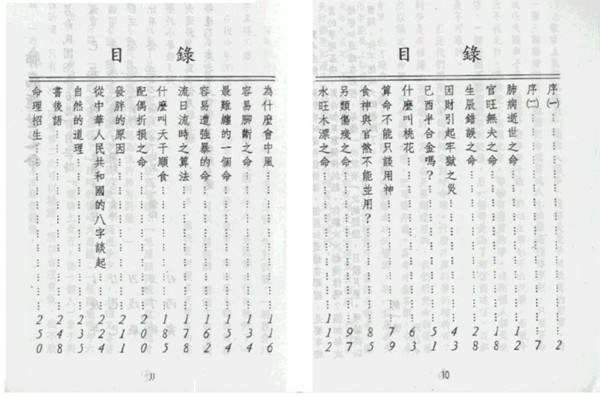 目錄
序(一)……………2
序(二)……………7
肺病逝世之命……………12
官旺無夫之命……………18
生辰錯誤之命……………28
因財引起牢獄之災……………43
巳酉半合金嗎?……………51
什麼叫桃花……………63
算命不能只談用神……………79
食神與官煞不能並用?……………85
另類傷殘之命……………97
水旺木漂之命……………112
10
目錄
為什麼會中風……………116
容易腳斷之命……………134
最難纏的一個命……………154
容易遭強暴的命……………162
流日流時之算法……………178
什麼叫天干順食……………185
配偶折損之命……………200
發胖的原因……………211
從中華人民共和國的八字談起……………224
自然的道理……………235
書後語……………248
命理招生……………250
11